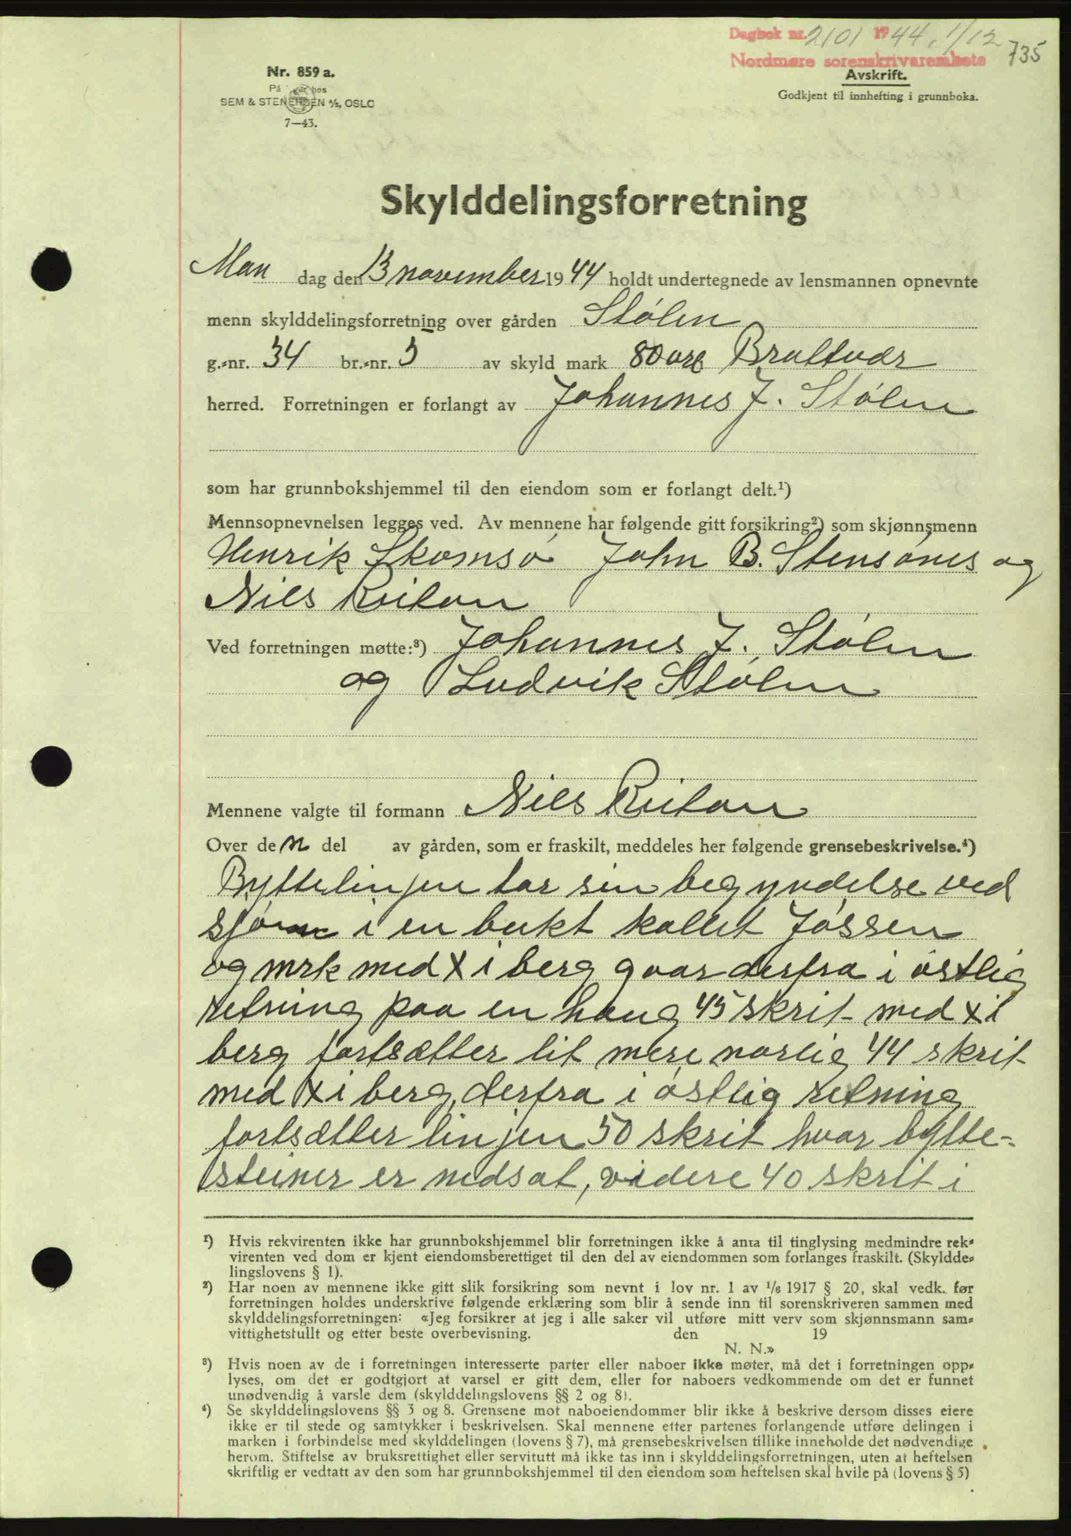 Dagbok nr. 2101 1944, 1/12
Nordmøre sorenskriverembete
735
Nr. 859 a.
På lager hos
SEM & STENERSEN A/S, OSLO
7—43.
Avskrift.
Godkjent til innhefting i grunnboka.
Skylddelingsforretning
Man dag den 13 november 1944 holdt undertegnede av lensmannen opnevnte
menn skylddelingsforretning over gården Stølen
g.-nr. 34 br.-nr. 5 av skyld mark 80 øre Brattvær
herred. Forretningen er forlangt av Johannes J. Stølen
som har grunnbokshjemmel til den eiendom som er forlangt delt.¹)
Mennsopnevnelsen legges ved. Av mennene har følgende gitt forsikring²) som skjønnsmenn
Henrik Skomsø John B. Stensønes og
Nils Roitan
Ved forretningen møtte:³) Johannes J. Stølen
og Ludvik Stølen
Mennene valgte til formann Nils Roitan
Over den del av gården, som er fraskilt, meddeles her følgende grensebeskrivelse.⁴)
Byttelinjen tar sin begyndelse ved
sjøen i en bukt kallet Jøssen
og mrk med X i berg gaar derfra i østlig
retning paa en haug 45 skrit med X i
berg fortsætter lit mere norlig 44 skrit
med X i berg, derfra i østlig retning
fortsætter linjen 50 skrit hvor bytte-
steiner er nedsat, videre 40 skrit i
¹) Hvis rekvirenten ikke har grunnbokshjemmel blir forretningen ikke å anta til tinglysing medmindre rek-
virenten ved dom er kjent eiendomsberettiget til den del av eiendommen som forlanges fraskilt. (Skyldde-
lingslovens § 1).
²) Har noen av mennene ikke gitt slik forsikring som nevnt i lov nr. 1 av 1/6 1917 § 20, skal vedk. før
forretningen holdes underskrive følgende erklæring som blir å sende inn til sorenskriveren sammen med
skylddelingsforretningen: «Jeg forsikrer at jeg i alle saker vil utføre mitt verv som skjønnsmann sam-
vittighetsfullt og etter beste overbevisning. den 19
N. N.»
³) Hvis noen av de i forretningen interesserte parter eller naboer ikke møter, må det i forretningen opp-
lyses, om det er godtgjort at varsel er gitt dem, eller for naboers vedkommende om det er funnet
unødvendig å varsle dem (skylddelingslovens §§ 2 og 8).
⁴) Se skylddelingslovens §§ 3 og 8. Grensene mot naboeiendommer blir ikke å beskrive dersom disses eiere
ikke er til stede og samtykker i beskrivelsen. Skal mennene etter partenes forlangende utføre delingen i
marken i forbindelse med skylddelingen (lovens § 7), må grensebeskrivelsen tillike inneholde det nødvendige
herom. Stiftelse av bruksrettighet eller servitutt må ikke tas inn i skylddelingsforretningen, uten at heftelsen
skriftlig er vedtatt av den som har grunnbokshjemmel til den eiendom som heftelsen skal hvile på (lovens § 5)